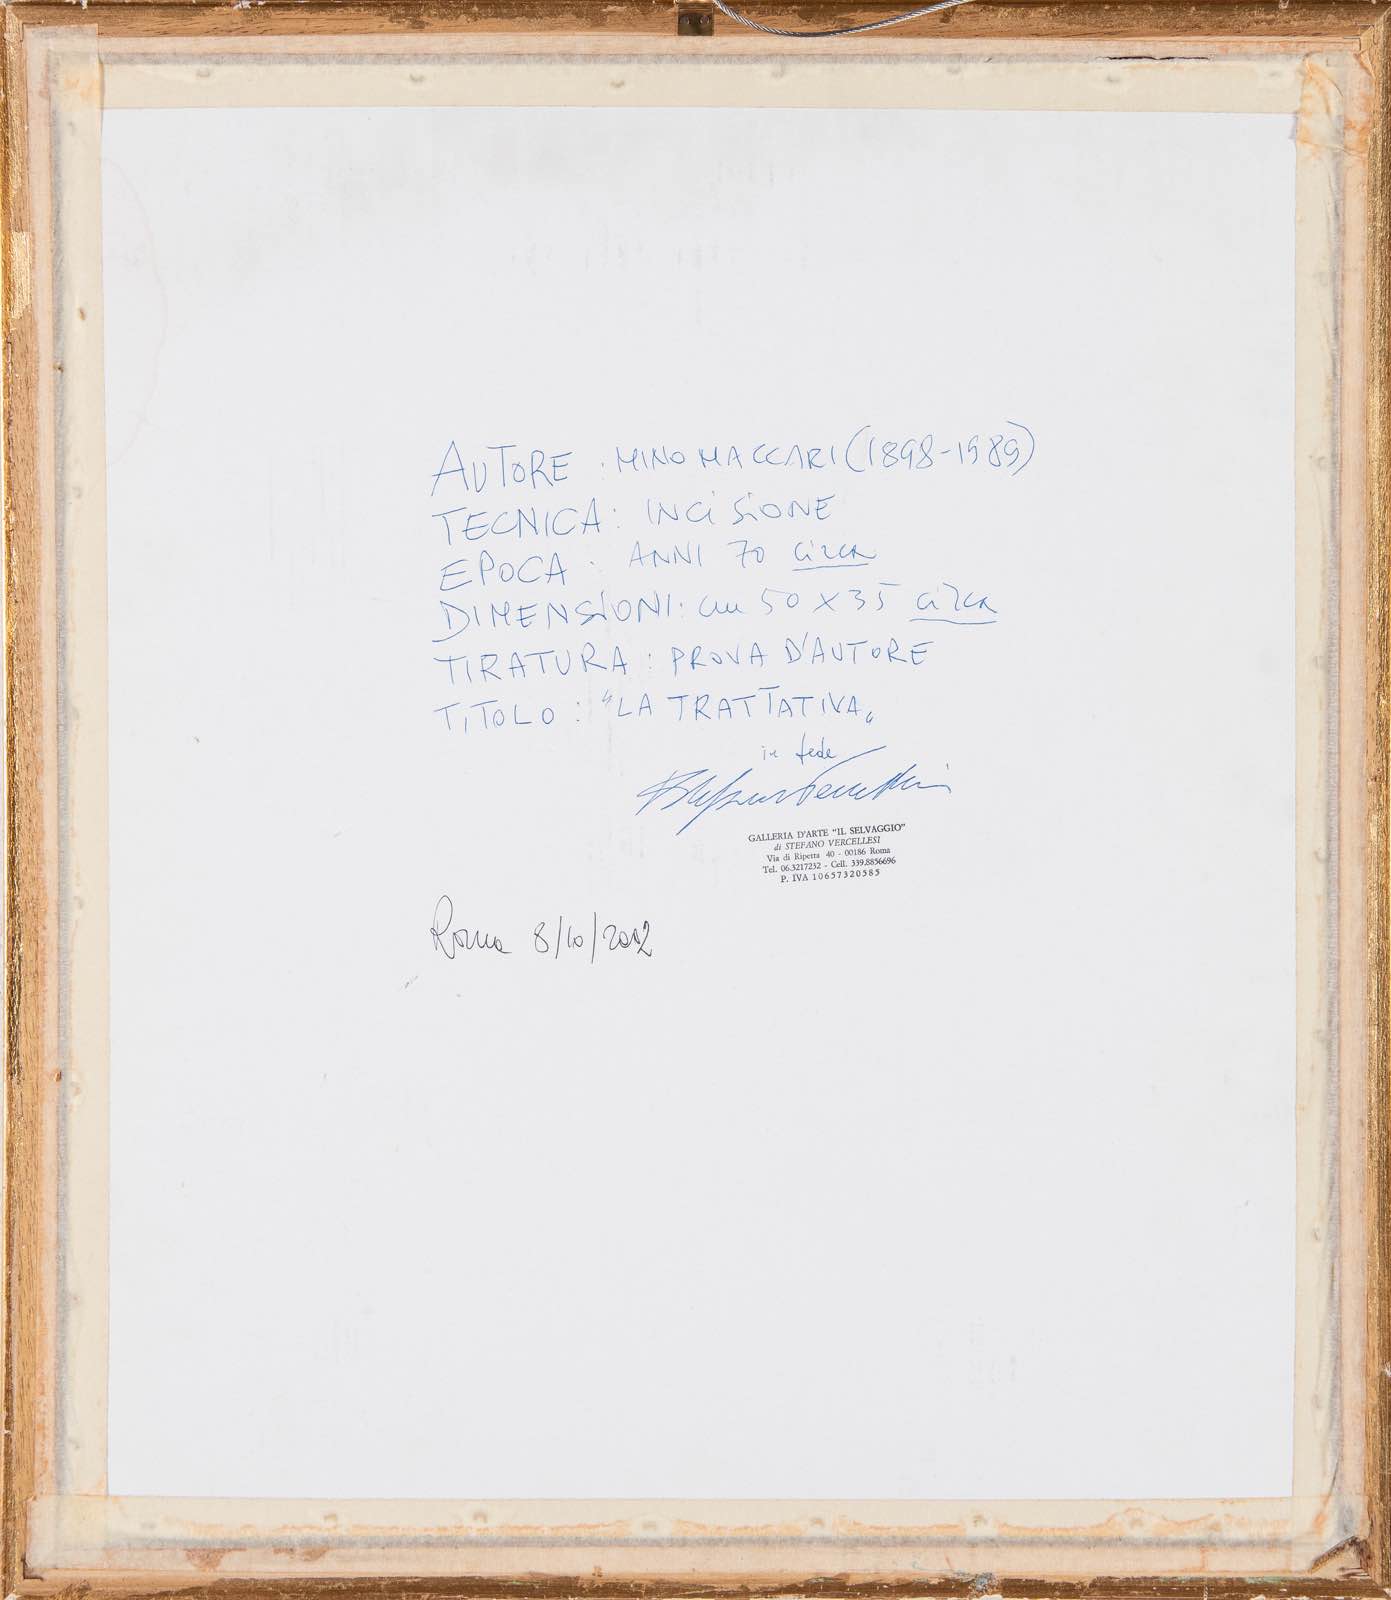 AUTORE : MINO MACCARI (1898-1989)
TECNICA: INCISIONE
EPOCA : ANNI 70 circa
DIMENSIONI: cm 50 X 35 circa
TIRATURA : PROVA D'AUTORE
TITOLO : "LA TRATTATIVA"
in fede
GALLERIA D'ARTE "IL SELVAGGIO"
di STEFANO VERCELLESI
Via di Ripetta 40 - 00186 Roma
Tel. 06.3217232 - Cell. 339.8856696
P. IVA 10657320585
Roma 8/10/2012